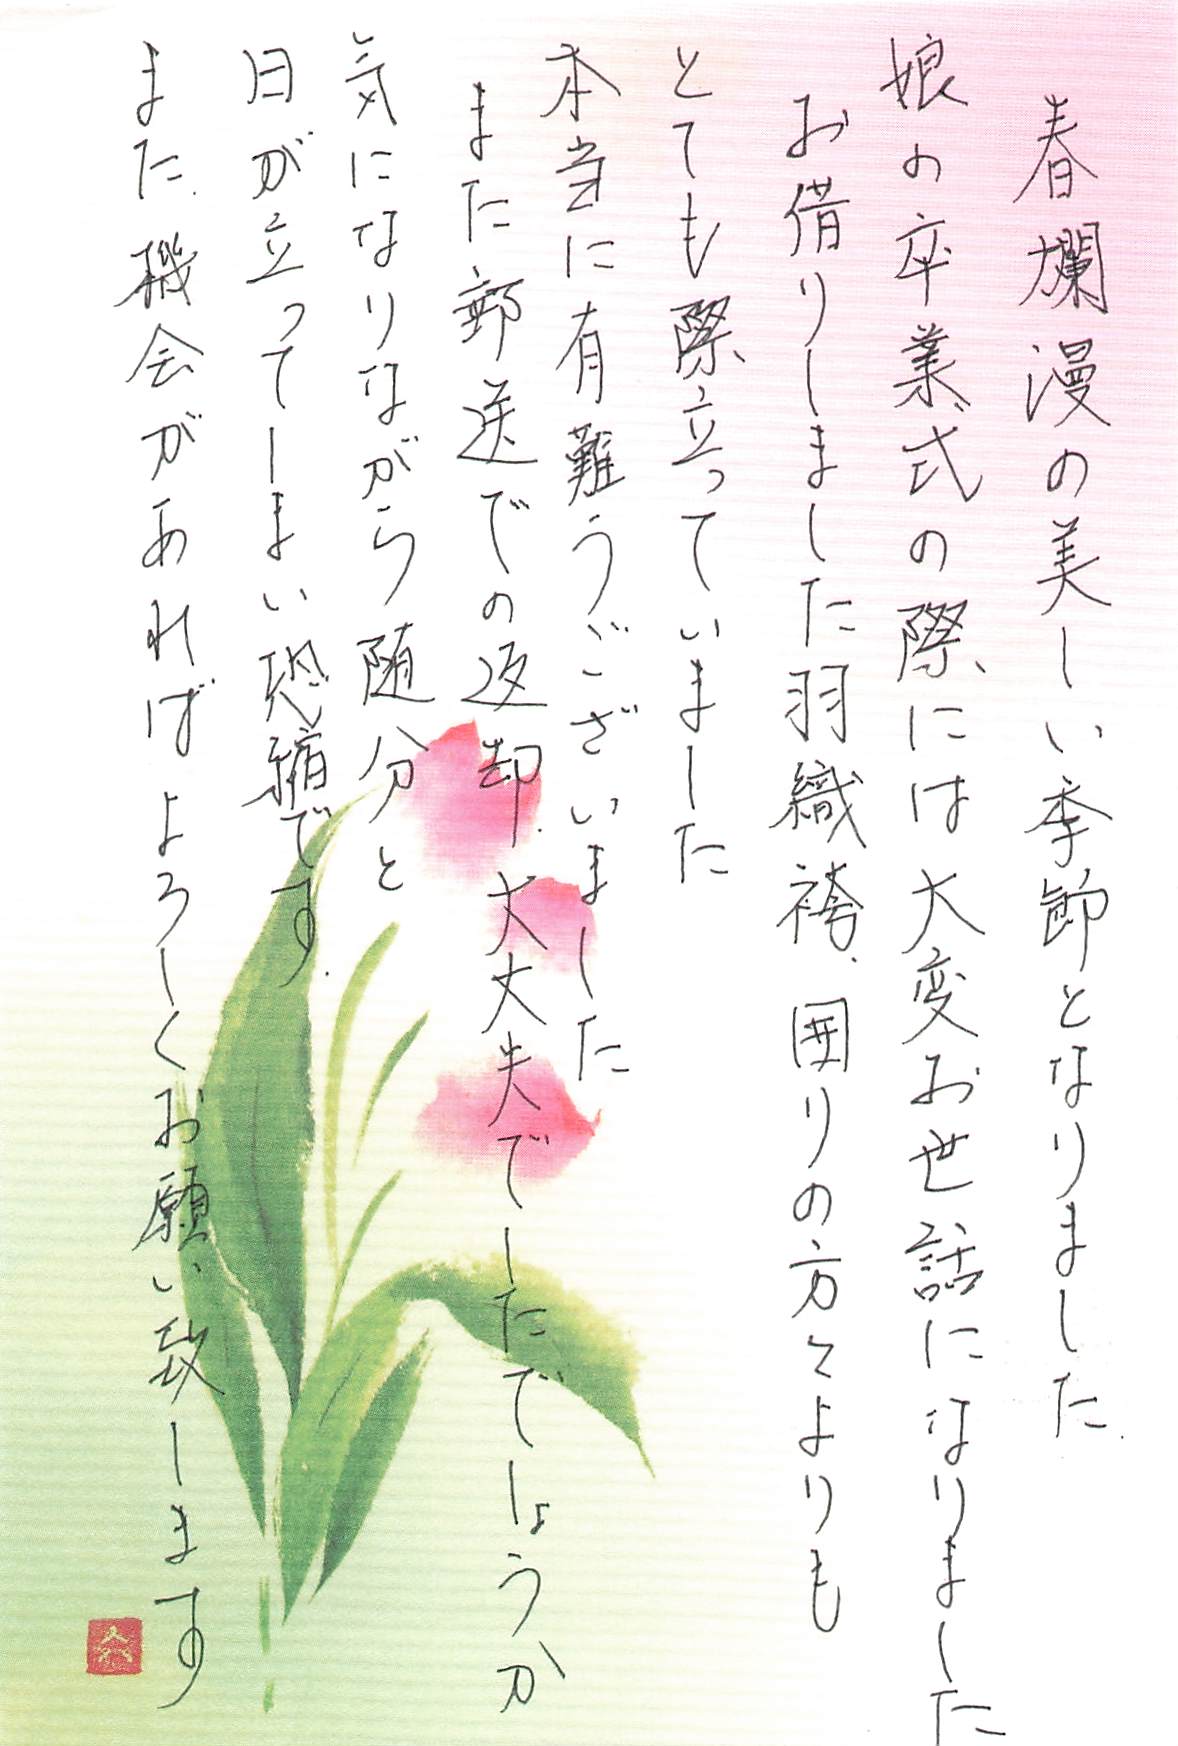 春爛漫の美しい季節となりました.
娘の卒業式の際には大変お世話になりました
お借りしました羽織袴.囲りの方々よりも
とても際立っていました
本当に有難うございました
また郵送での返却.大丈夫でしたでしょうか
気になりながら随分と
日が立ってしまい恐縮です.
また.機会があればよろしくお願い致します